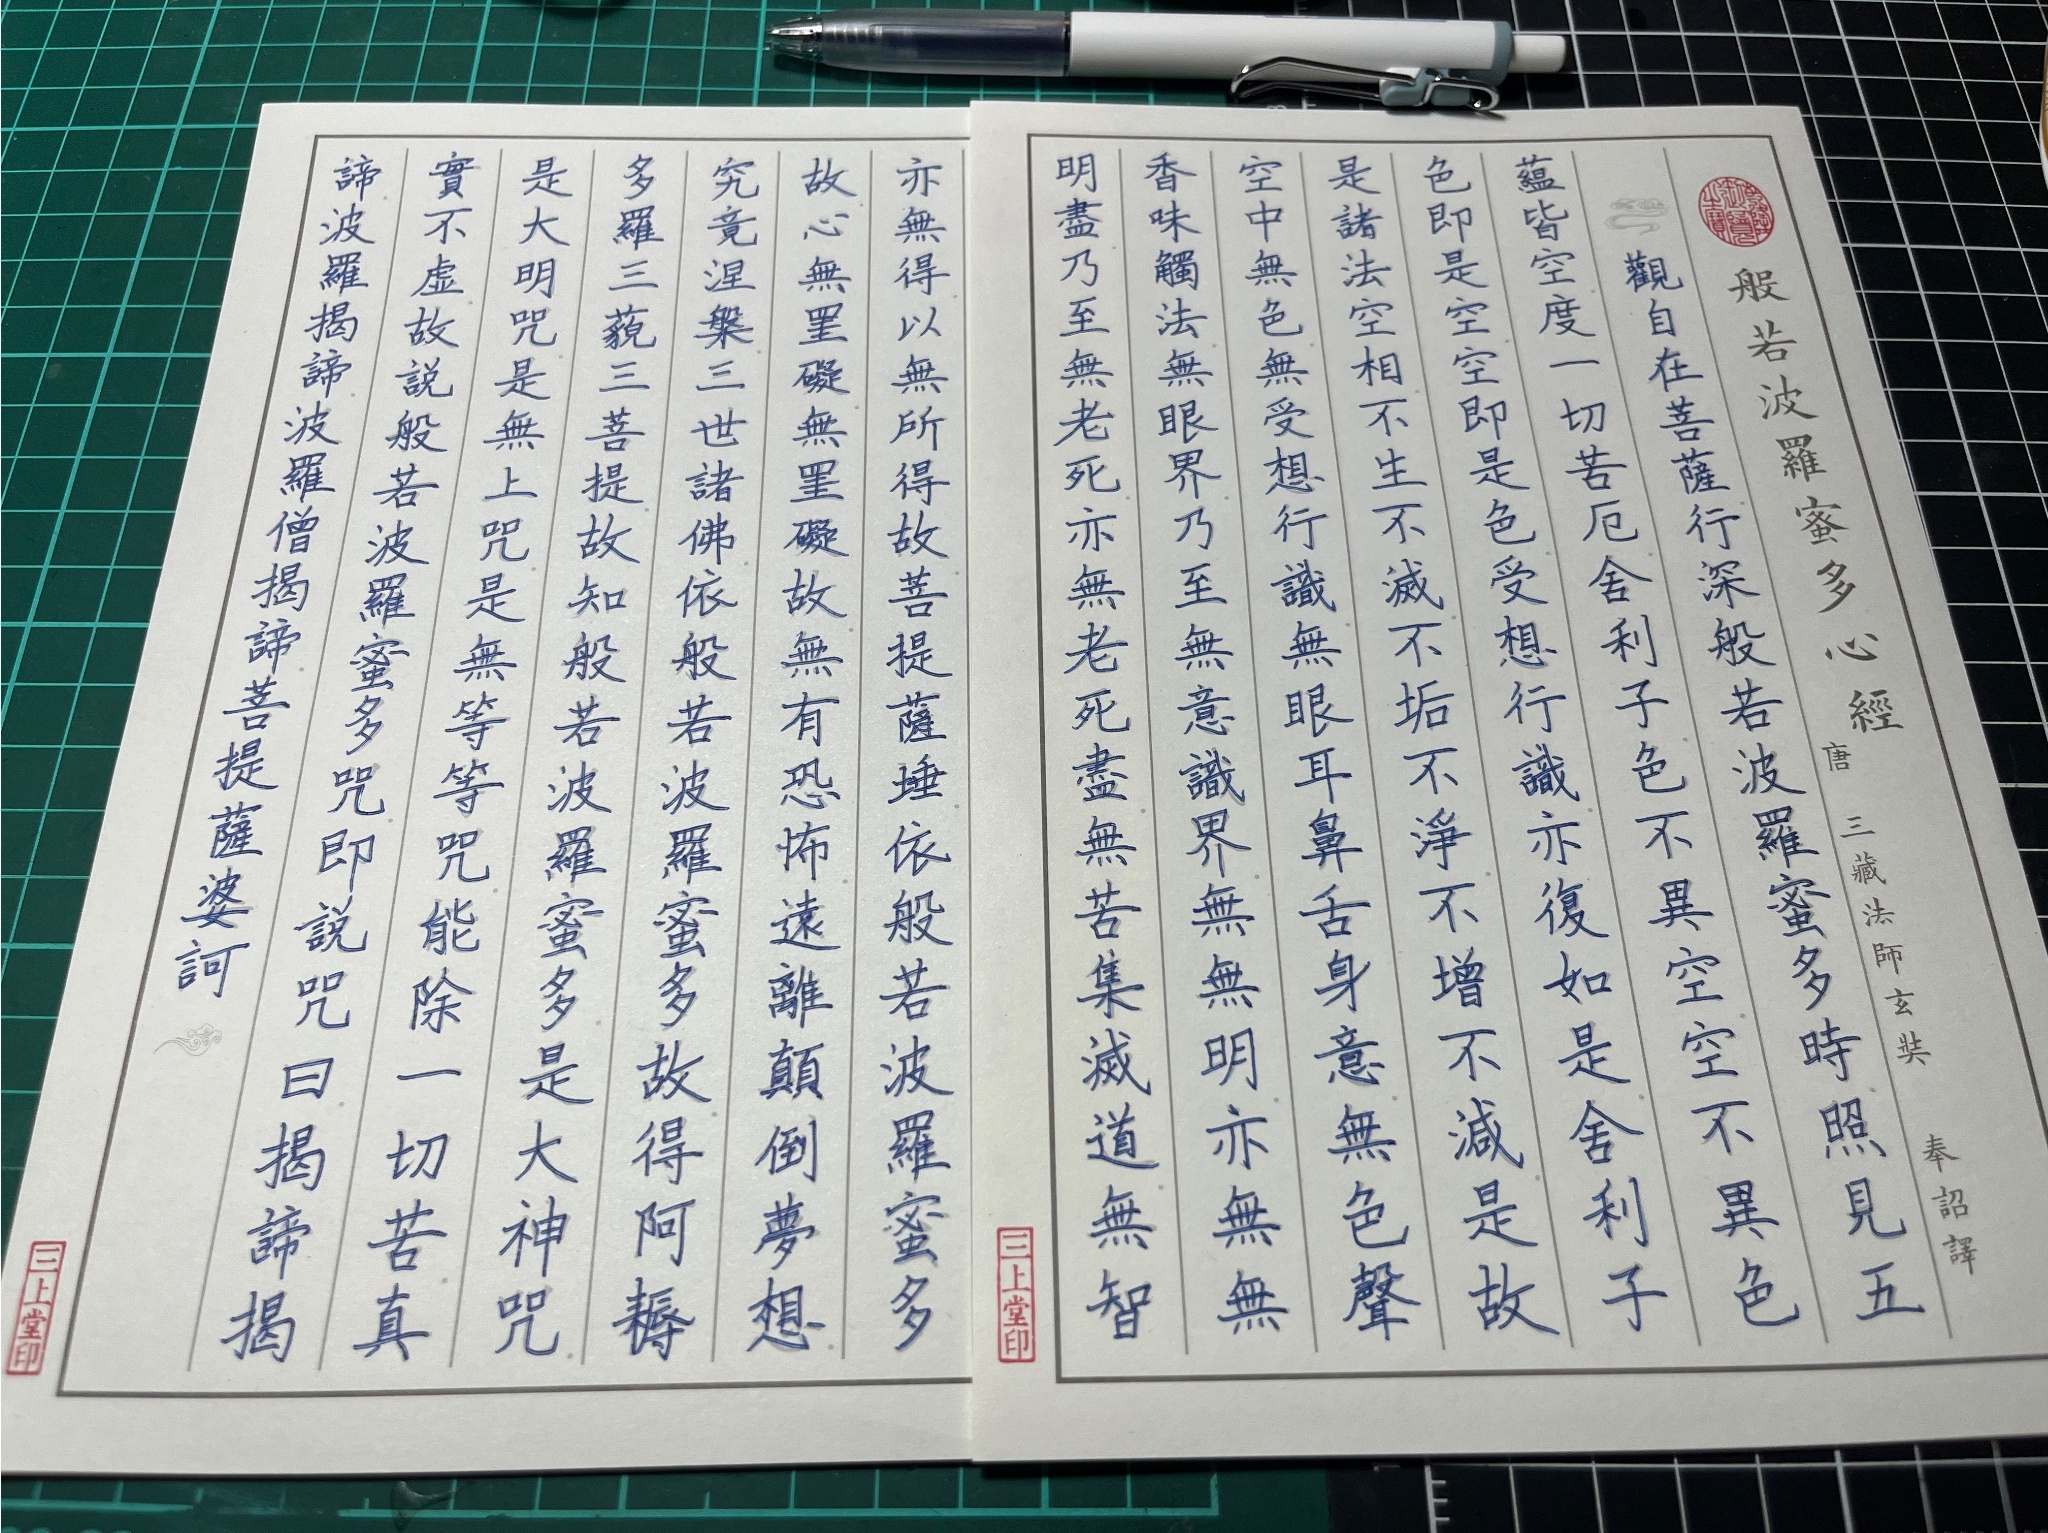 般若波羅蜜多心經
唐 三藏法師玄奘 奉詔譯
觀自在菩薩行深般若波羅蜜多時照見五
蘊皆空度一切苦厄舍利子色不異空空不異色
色即是空空即是色受想行識亦復如是舍利子
是諸法空相不生不滅不垢不淨不增不減是故
空中無色無受想行識無眼耳鼻舌身意無色聲
香味觸法無眼界乃至無意識界無無明亦無無
明盡乃至無老死亦無老死盡無苦集滅道無智
三上堂印
亦無得以無所得故菩提薩埵依般若波羅蜜多
故心無罣礙無罣礙故無有恐怖遠離顛倒夢想
究竟涅槃三世諸佛依般若波羅蜜多故得阿耨
多羅三藐三菩提故知般若波羅蜜多是大神咒
是大明咒是無上咒是無等等咒能除一切苦真
實不虛故說般若波羅蜜多咒即說咒曰揭諦揭
諦波羅揭諦波羅僧揭諦菩提薩婆訶
三上堂印